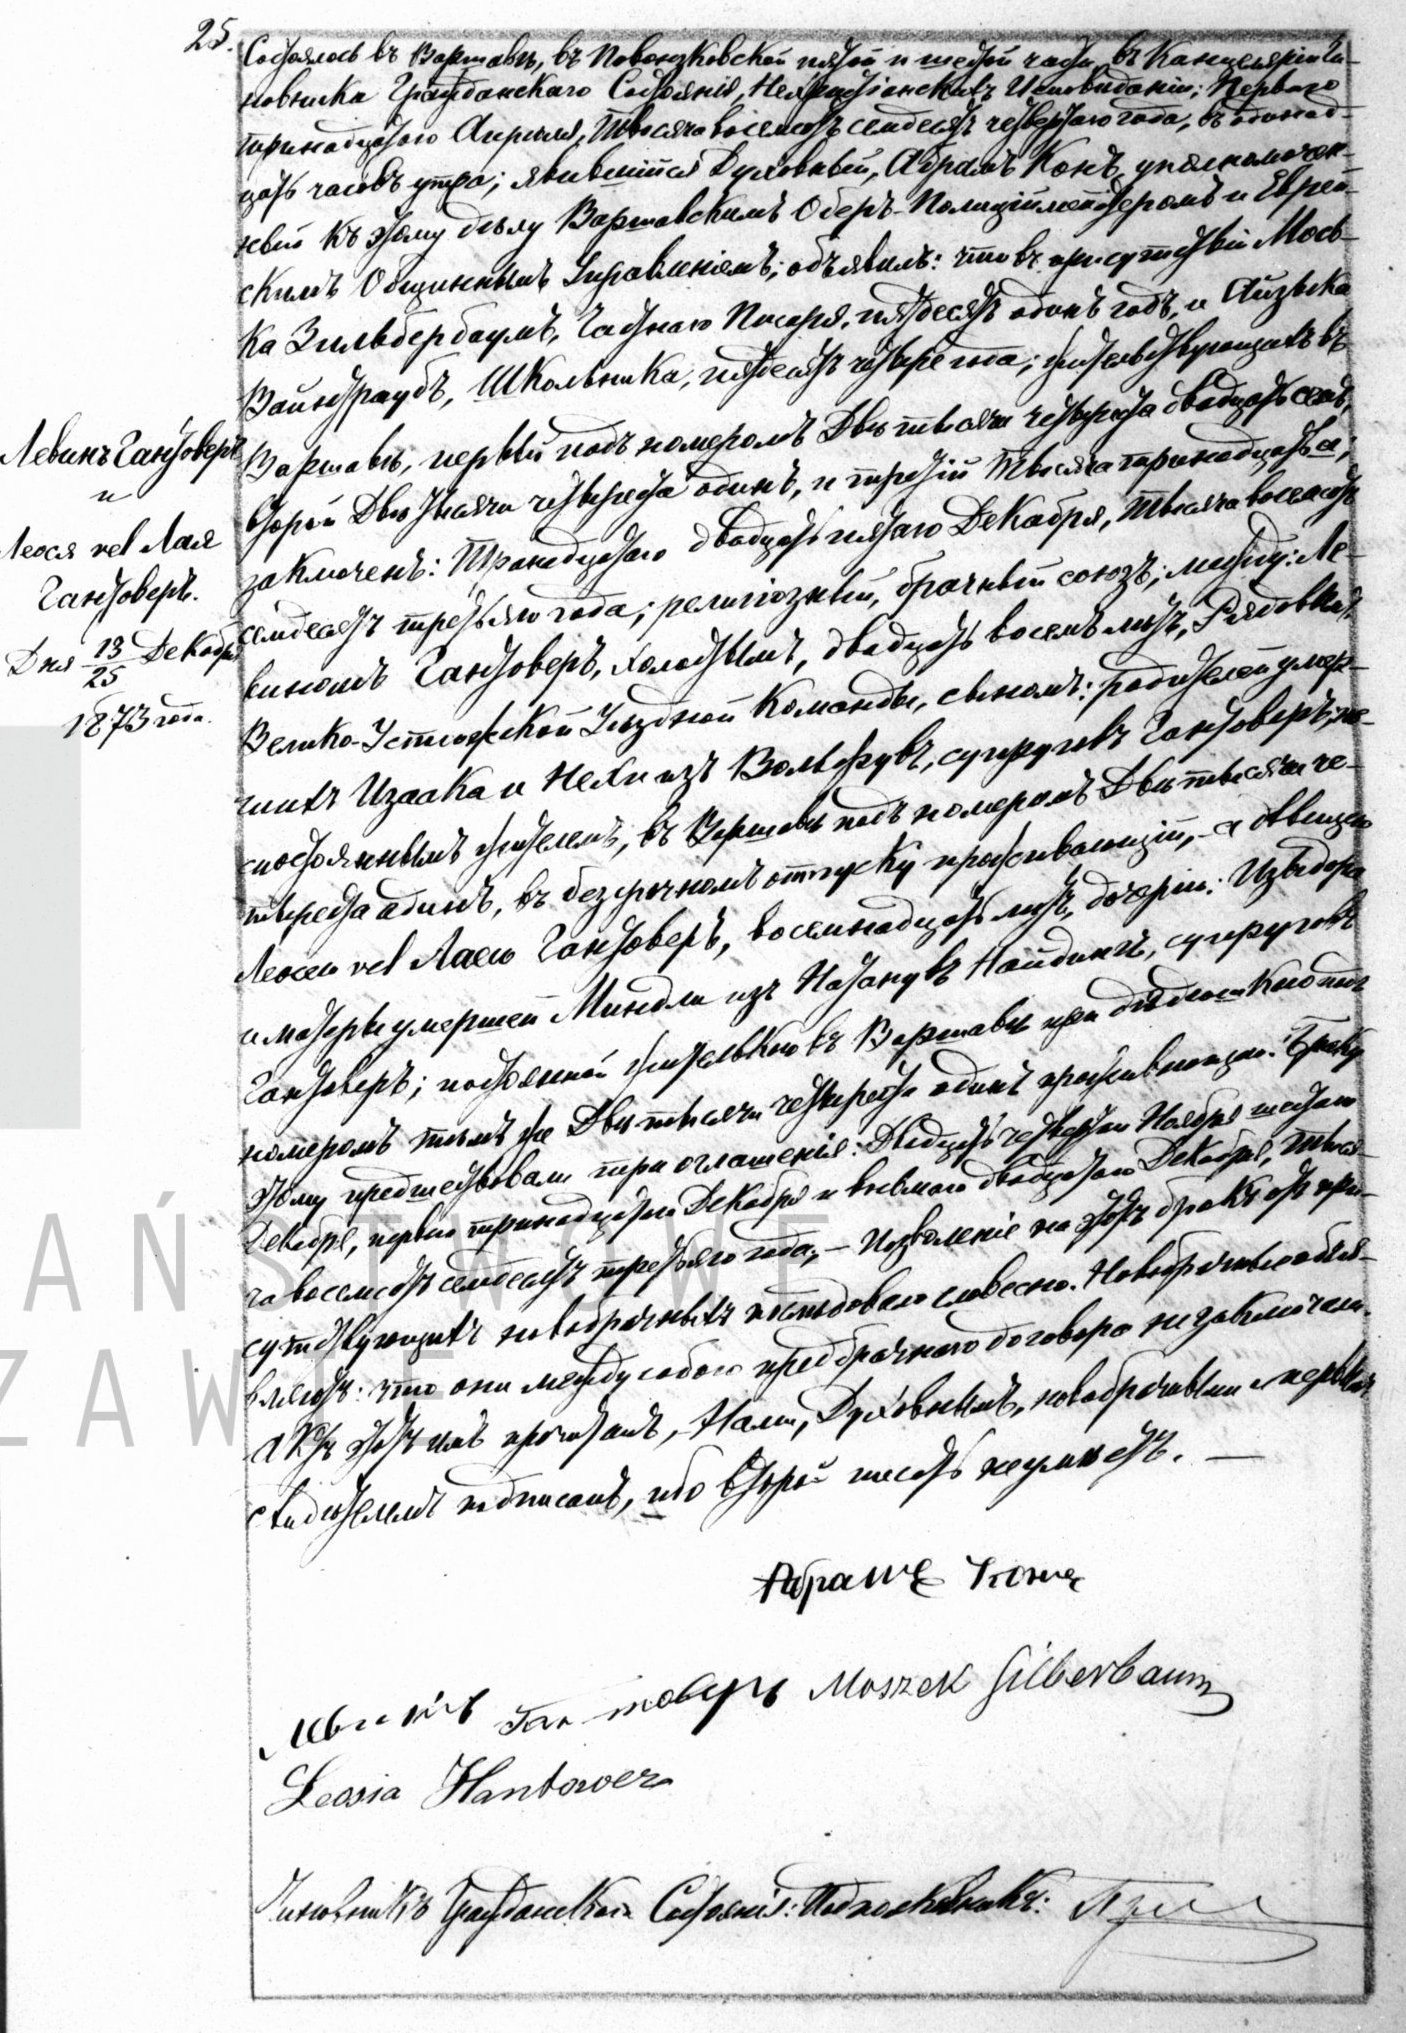 25.
Состоялось въ Варшавѣ, въ Повонзковской пятой и шестой части, въ Канцеляріи Чи-
новника Гражданскаго Состоянія, Нехристіанскихъ Исповѣданій; Перваго
тринадцатаго Апрѣля, тысяча восемсотъ семдесятъ четвертаго года, въ одинад-
цать часовъ утра; явившійся Духовный, Абрамъ Конъ, уполномочен-
ный къ этому дѣлу Варшавскимъ Оберъ-Полиціймейстеромъ и Еврей-
скимъ Общиннымъ Управленіемъ; объявилъ: что въ присутствіи Мось-
ка Зильбербаумъ, Частнаго Писаря, пятдесятъ одинъ годъ, и Айзыка
Вайнтраубъ, Школьника, пятдесятъ четыре года; жительствующихъ въ
Варшавѣ, первый подъ номеромъ Двѣ тысячи четыреста двадцать семь,
второй Двѣ тысячи четыреста одинъ, и третій Тысяча тринадцать а;
заключенъ: Тринадцатаго двадцать пятаго Декабря, тысяча восемсотъ
семдесятъ третьяго года; религіозный, брачный союзъ; между: Ле-
виномъ Гантоверъ, холостымъ, двадцать восемъ лѣтъ, Рядовымъ
Велико-Устюжской Уѣздной Команды, сыномъ: родителей умер-
шихъ Изаака и Нехи изъ Вольфувъ, супруговъ Гантоверъ; не-
постояннымъ жителемъ, въ Варшавѣ подъ номеромъ Двѣ тысячи че-
тыреста одинъ, въ безсрочномъ отпуску проживающій, - а дѣвицею
Леосею vel Лаею Гантоверъ, восемнадцать лѣтъ, дочерью: Изыдора
и матери умершей Миндли изъ Натанувъ Найдингъ, супруговъ
Гантоверъ; постоянной жительницею въ Варшавѣ при отцѣ подъ
номеромъ тымъ же Двѣ тысячи четыреста одинъ проживающею. Браку
этому предшествовали три оглашенія: Двадцать четвертаго Ноября шестаго
Декабря, перваго тринадцатаго Декабря и восьмаго двадцатаго Декабря, тыся-
ча восемсотъ семдесятъ третьяго года; - Позволеніе на этотъ бракъ отъ при-
сутствующихъ новобрачныхъ послѣдовало словесно. Новобрачные объя-
вляютъ: что они между собою предбрачнаго договора не заключали.
Актъ этотъ имъ прочитанъ, - Нами, Духовнымъ, новобрачными и первымъ
свидѣтелемъ подписанъ, ибо второй писать не умѣетъ. —
Левинъ Гантоверъ
и
Леося vel Лая
Гантоверъ.
Дня 13/25 Декабря
1873 года.
Абрамъ Конъ
Левинъ Гантоверъ Moszek Silberbaum
Leosia Hantower
Чиновникъ Гражданскаго Состоянія: Подполковникъ:
PAŃSTWOWE
WARSZAWIE